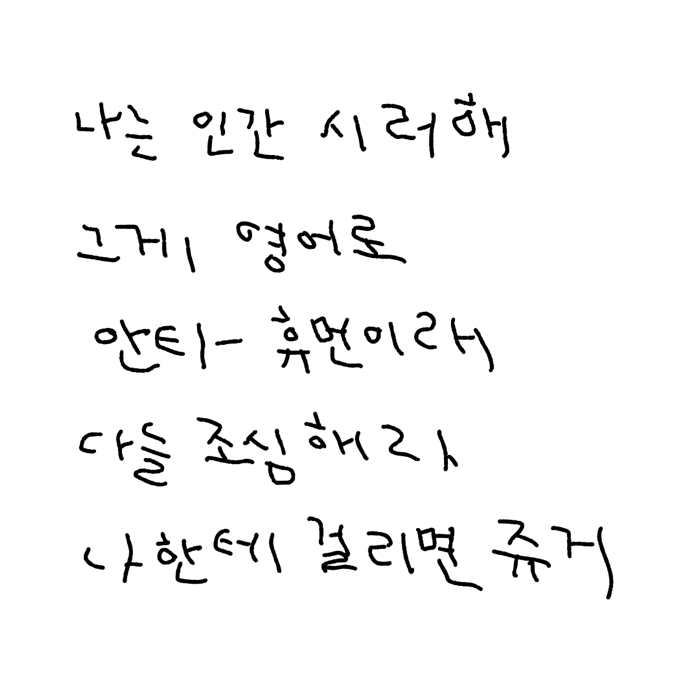 나는 인간 시러해
그게 영어로
안티- 휴먼이래
다들 조심해라
나한테 걸리면 쥬거